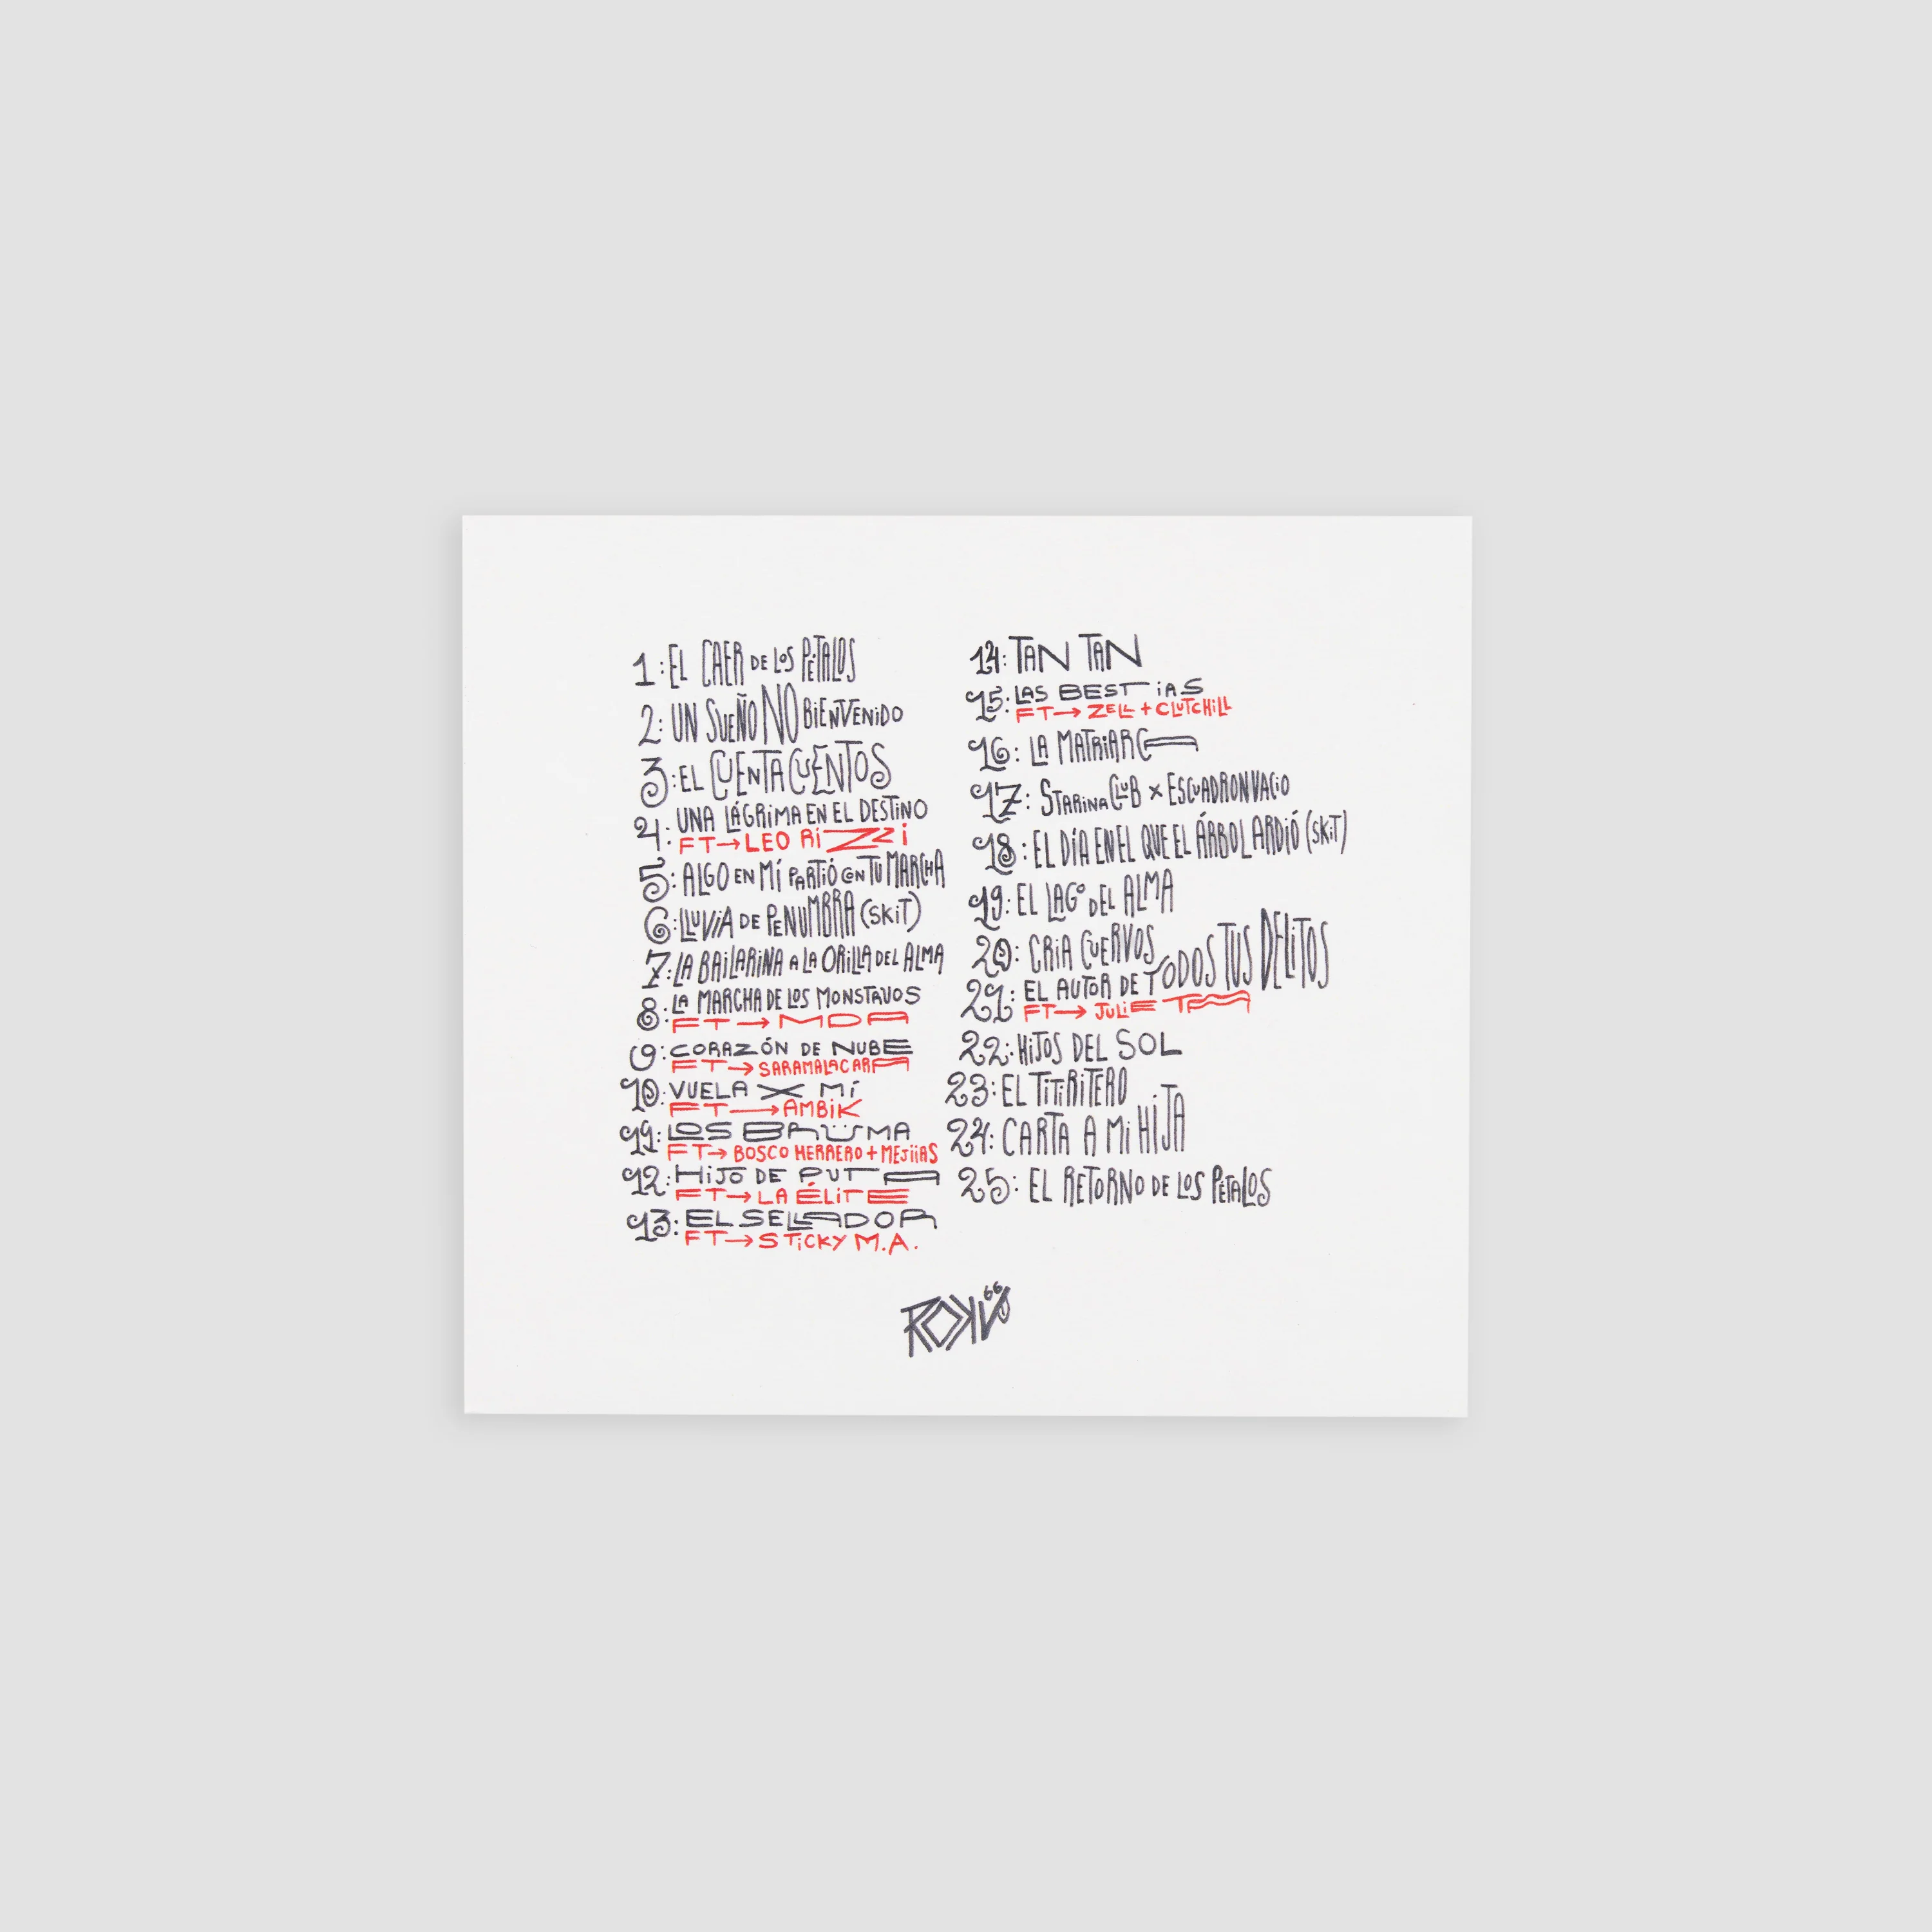 1: EL CAER DE LOS PÉTALOS
2: UN SUEÑO NO BIENVENIDO
3: EL CUENTACUENTOS
4: UNA LÁGRIMA EN EL DESTINO
FT→LEO RIZZI
5: ALGO EN MÍ PARTIÓ CON TU MARCHA
6: LLUVIA DE PENUMBRA (SKIT)
7: LA BAILARINA A LA ORILLA DEL ALMA
8: LA MARCHA DE LOS MONSTRUOS
FT→MDA
9: CORAZÓN DE NUBE
FT→SARAMALACARA
10: VUELA X MÍ
FT→AMBIK
11: LOS BRÜSMA
FT→BOSCO HERRERO+MEJIIAS
12: HIJO DE PUTA
FT→LA ÉLITE
13: EL SELLADOR
FT→STICKY M.A.
14: TAN TAN
15: LAS BESTIAS
FT→ZELL+CLUTCHILL
16: LA MATRIARCA
17: STARINA CLUB X ESCUADRON VACIO
18: EL DÍA EN EL QUE EL ÁRBOL ARDIÓ (SKIT)
19: EL LAGO DEL ALMA
20: CRIA CUERVOS
21: EL AUTOR DE TODOS TUS DELITOS
FT→JULIETA
22: HIJOS DEL SOL
23: EL TITIRITERO
24: CARTA A MI HIJA
25: EL RETORNO DE LOS PÉTALOS